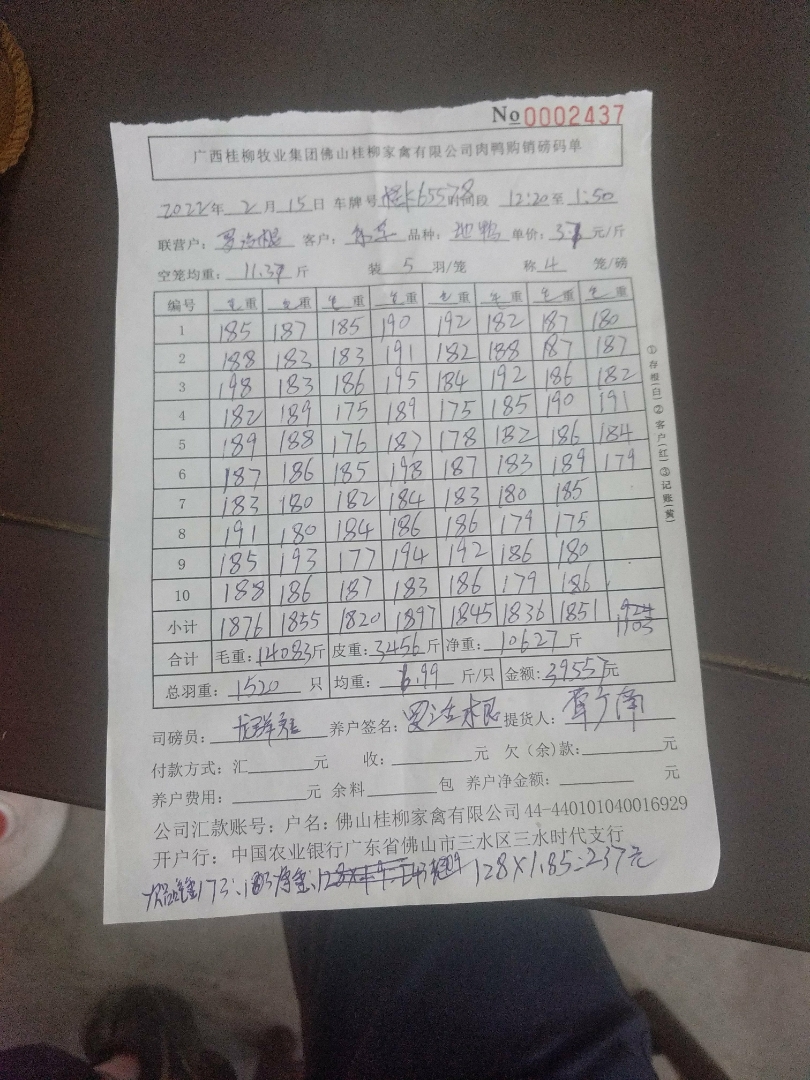 No 0002437
广西桂柳牧业集团佛山桂柳家禽有限公司肉鸭购销磅码单
2022年 2月 15日 车牌号 65578 时间段 12:20至 1:50
联营户: 客户: 品种: 单价: 元/斤
空笼均重: 11.37 斤 装 5 羽/笼 称 4 笼/磅
编号 毛重 毛重 毛重 毛重 毛重 毛重 毛重 毛重
1 185 187 185 190 192 182 187 180
2 188 183 183 191 182 188 187 187
3 198 183 186 195 184 192 186 182
4 182 189 175 189 175 185 190 191
5 189 188 176 187 178 182 186 184
6 187 186 185 198 187 183 189 179
7 183 180 182 184 183 180 185
8 191 180 184 186 186 179 175
9 185 193 177 194 192 186 180
10 188 186 187 183 186 179 186
小计 1876 1855 1820 1897 1845 1836 1851 1103
合计 毛重: 14083斤 皮重: 3456斤 净重: 10627斤
总羽重: 1520 只 均重: 6.99 斤/只 金额: 39557元
司磅员: 养户签名: 提货人:
付款方式: 汇 元 收: 元 欠(余)款: 元
养户费用: 元 余料 包 养户净金额: 元
公司汇款账号: 户名: 佛山桂柳家禽有限公司 44-440101040016929
开户行: 中国农业银行广东省佛山市三水区三水时代支行
173 128×1.85=237元
①存根(白)②客户(红)③记账(黄)